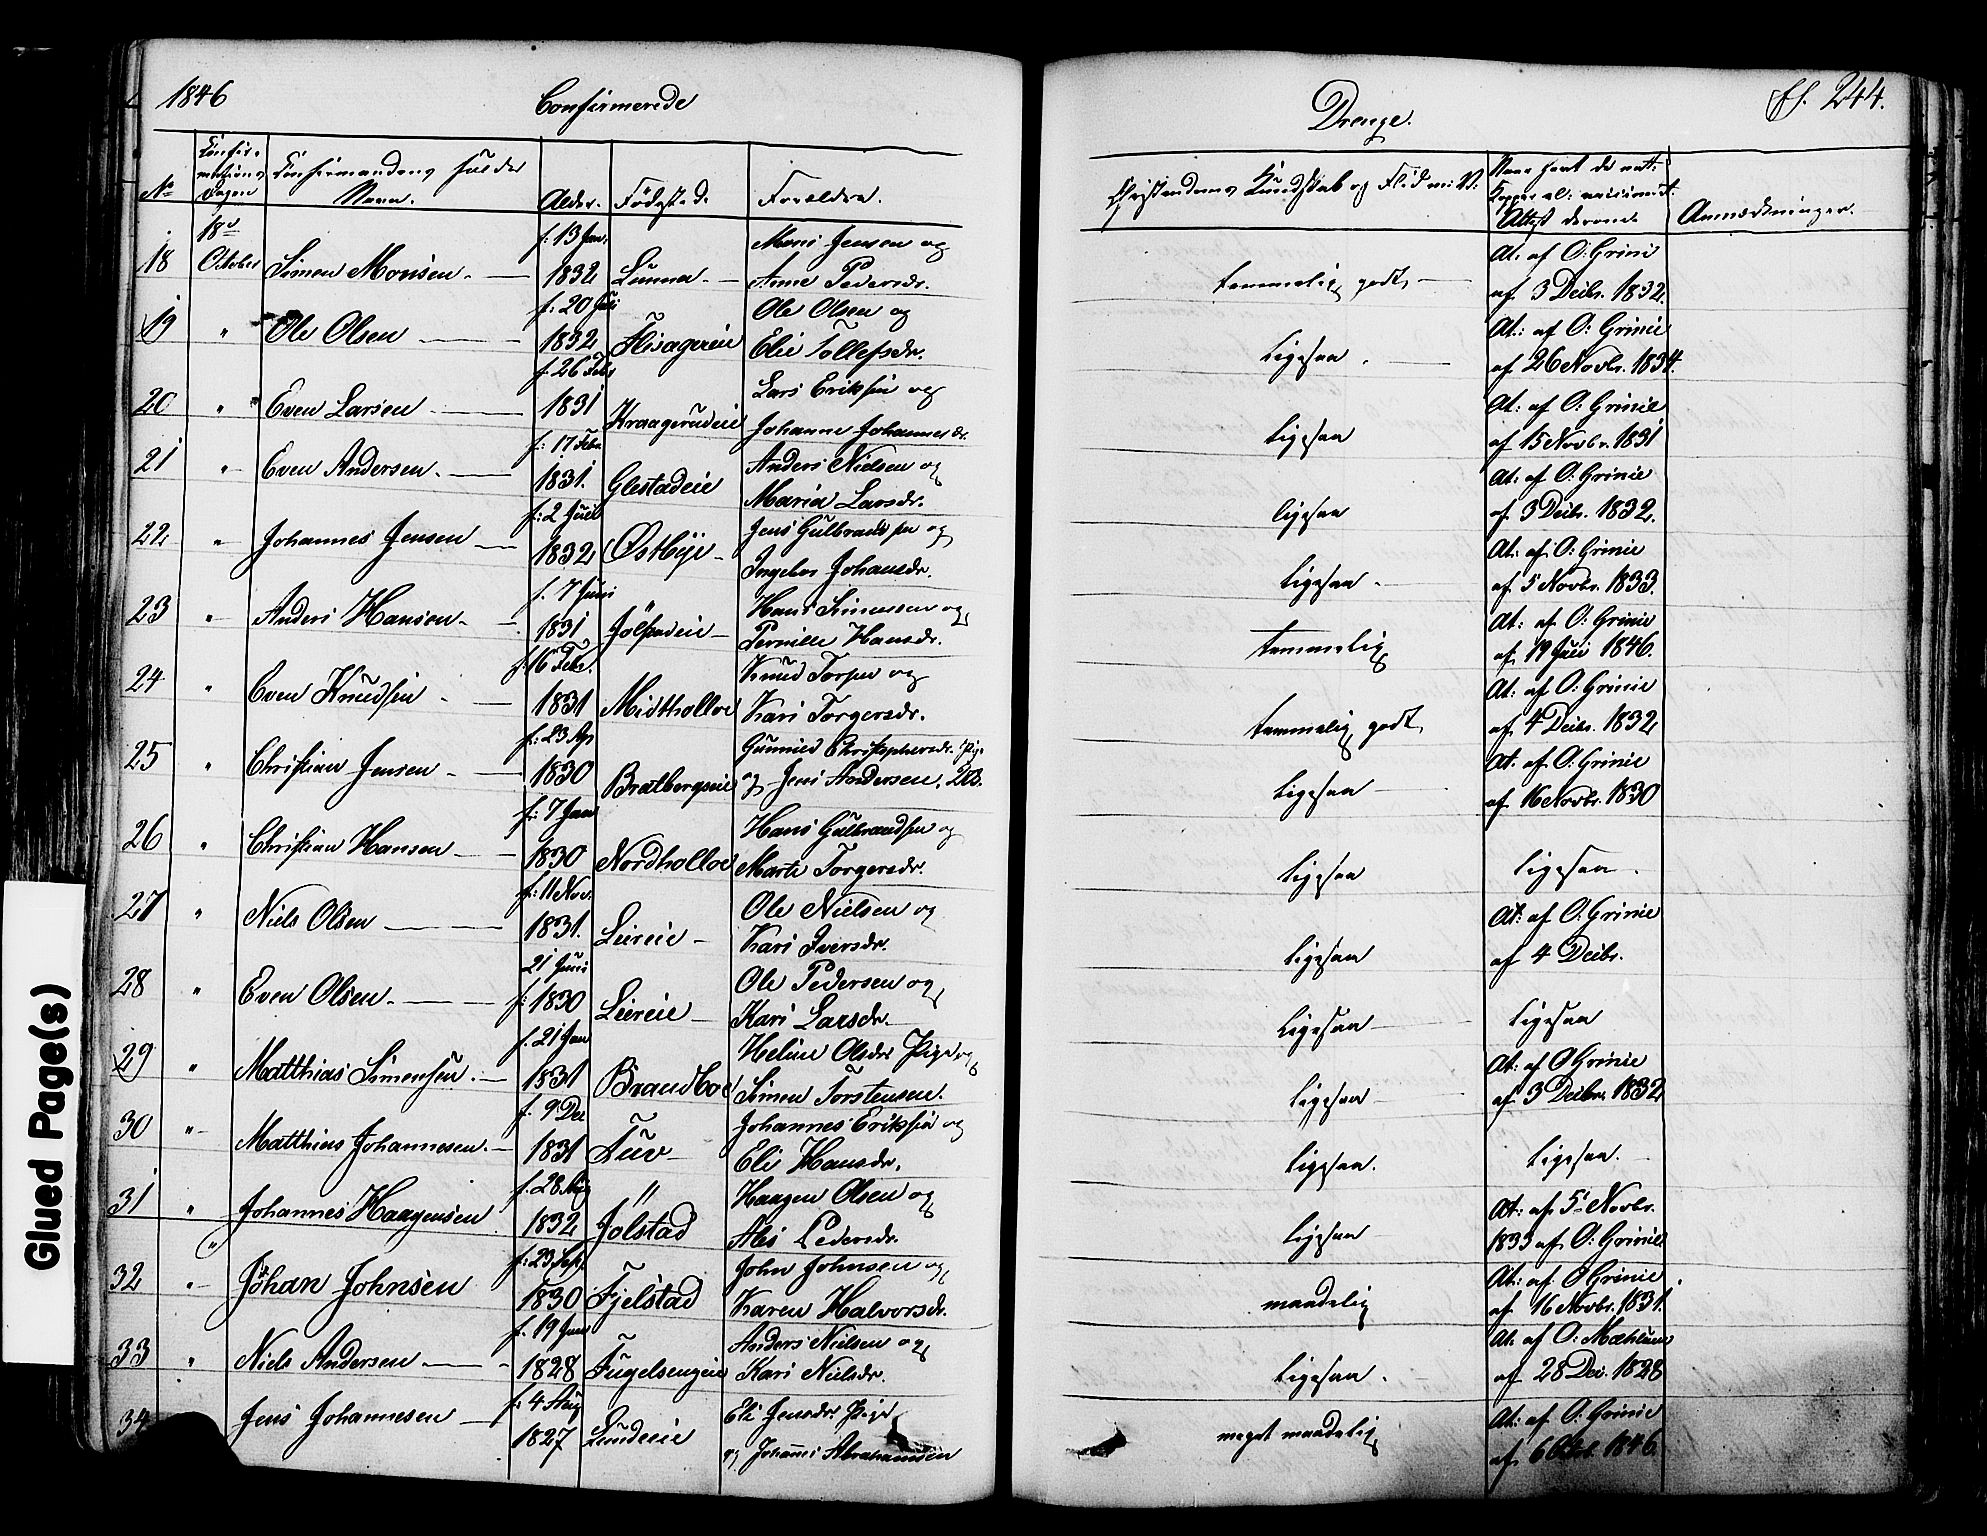 1846 Confirmerede
Drenge. fl. 244.
No Confirmations Dagen Confirmandens fulde Navn. Alder. Födested. Forældre. Christendoms Kundskab og Flid Naar havt de natt: Kopper el: vaccineret. Attest derom Anmærkninger.
18 18de October Simen Monsen f. 13 Jan. 1832 Lunna Mons Jensen og Anne Pedersdr. temmelig godt At. af O: Grinie af 3 Decbr. 1832.
19 " Ole Olsen f. 20 Juli 1832 Flisageeie Ole Olsen og Elie Tollefsdr. ligesaa At: af O: Grinie af 26 Novbr. 1834.
20 " Even Larsen f. 26 Febr 1831 Kraagerudeie Lars Eriksen og Johanne Johannesdr. ligesaa At: af O: Grinie af 15 Novbr. 1831
21 " Even Andersen f: 17 Febr. 1831. Glestadeie Anders Nielsen og Maria Larsdr. ligesaa At. af O: Grinie af 3 Decbr. 1832.
22 " Johannes Jensen f: 2 Juli 1832 Østbye Jens Gulbrandsen og Ingebor Johansdr. ligesaa At: af O: Grinie af 5 Novbr. 1833.
23 " Anders Hansen f. 7 Juni 1831 Jölstadeie Hans Simensen og Pernille Hansdr. temmelig At: af O: Grinie af 19 Juli 1846.
24 " Even Knudsen f. 16 Febr. 1831 Midtholloe Knud Torsen og Kari Torgersdr. temmelig godt At: af O: Grinie af 4 Decbr. 1832
25 " Christian Jensen f: 23 Ap 1830 Bratbergseie Gunnild Christophersdr. Pige og Jens Andersen, ligesaa At. af O: Grinie af 16 Novbr. 1830
26 " Christian Hansen f: 7 Jan 1830 Nordholloe Hans Gulbrandsen og Marte Torgersdr. ligesaa ligesaa.
27 " Niels Olsen f: 11 Nov. 1831. Leireie Ole Nielsen og Kari Iversdr. ligesaa At: af O: Grinie af 4 Decbr.
28 " Even Olsen f: 21 Juni 1830 Leireie Ole Pedersen og Kari Larsdr. ligesaa ligesaa
29 " Matthias Simensen f. 21 Jan 1831 Brandboe Heline Olsdr Pige og Simen Torstensen. ligesaa At: af O Grinie af 3 Decbr. 1832
30 " Matthias Johannesen. f. 9 Dec 1831 Tuv Johannes Eriksen og Eli Hansdr. ligesaa. ligesaa.
31 " Johannes Haagensen f. 28 Aug 1832 " Jolstad Haagen Olsen og Alis Pedersdr. ligesaa At: af 5 Novbr. 1833 af O: Grinie
32 " Johan Johnsen f: 23 Sept. 1830 Fjelstad John Johnsen og Karen Halvorsdr. maadelig At: af O Grinie af 16 Novbr. 1831.
33 " Niels Andersen f. 19 Juni 1828 Fugelsengeie Anders Nielsen og Kari Nielsdr. ligesaa. At. af O: Mæhlum af 28 Dec. 1828
34 Jens Johannesen f: 4 Aug 1827 Lundeeie Eli Jensdr. Pige og Johannes Abrahamsen meget maadelig At: af O: Grinie af 6 Octbr. 1846
Glued Page(s)